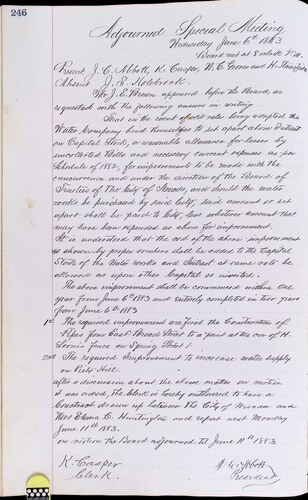 246
Adjourned Special Meeting
Wednesday June 6th 1883
Board met at 8 oclock P.M.
Present J. C. Abbott, K. Casper, N. C. Groves and H.
Absent J. E. Holebrook.
Mr J. E. Brown appeared before the Board, as
requested with the following answer in writing.
That in the event of said rates being adopted the
Water Company bind themselves to set apart above Interest
on Capital Stock, a reasonable allowance for losses by
uncollected bills and necessary current expenses as per
Schedule of 1882, for improvements to be made with the
concurrence and under the direction of the Board of
Trustees of The City of Nevada, and should the water
works be purchased by said City, said amount so set
apart shall be paid to City, less whatever amount that
may have been expended as above for improvement.
It is understood that the cost of the above improvement
as shown by proper vouchers shall be added to the Capital
Stock of the Water works and Interest at same rate be
allowed as upon other Capital so invested.
The above improvement shall be commenced within one
year from June 6th 1883 and entirely completed in two years
from June 6th 1883
1st The required improvement are first the Construction of
Pipes from Broad Street to a point at the cor of H.
Fence on Spring Street.
2nd The required Improvement to increase water supply
on Hill
after a discussion about the above matter on motion
it was asked, The Clerk is hereby authorized to have a
Contract drawn up between The City of Nevada and
Mrs Emma C. Huntington and report next Monday
June 11th 1883.
on motion the Board adjourned til June 11th 1883
K. Casper
Clerk.
J. C. Abbott
President